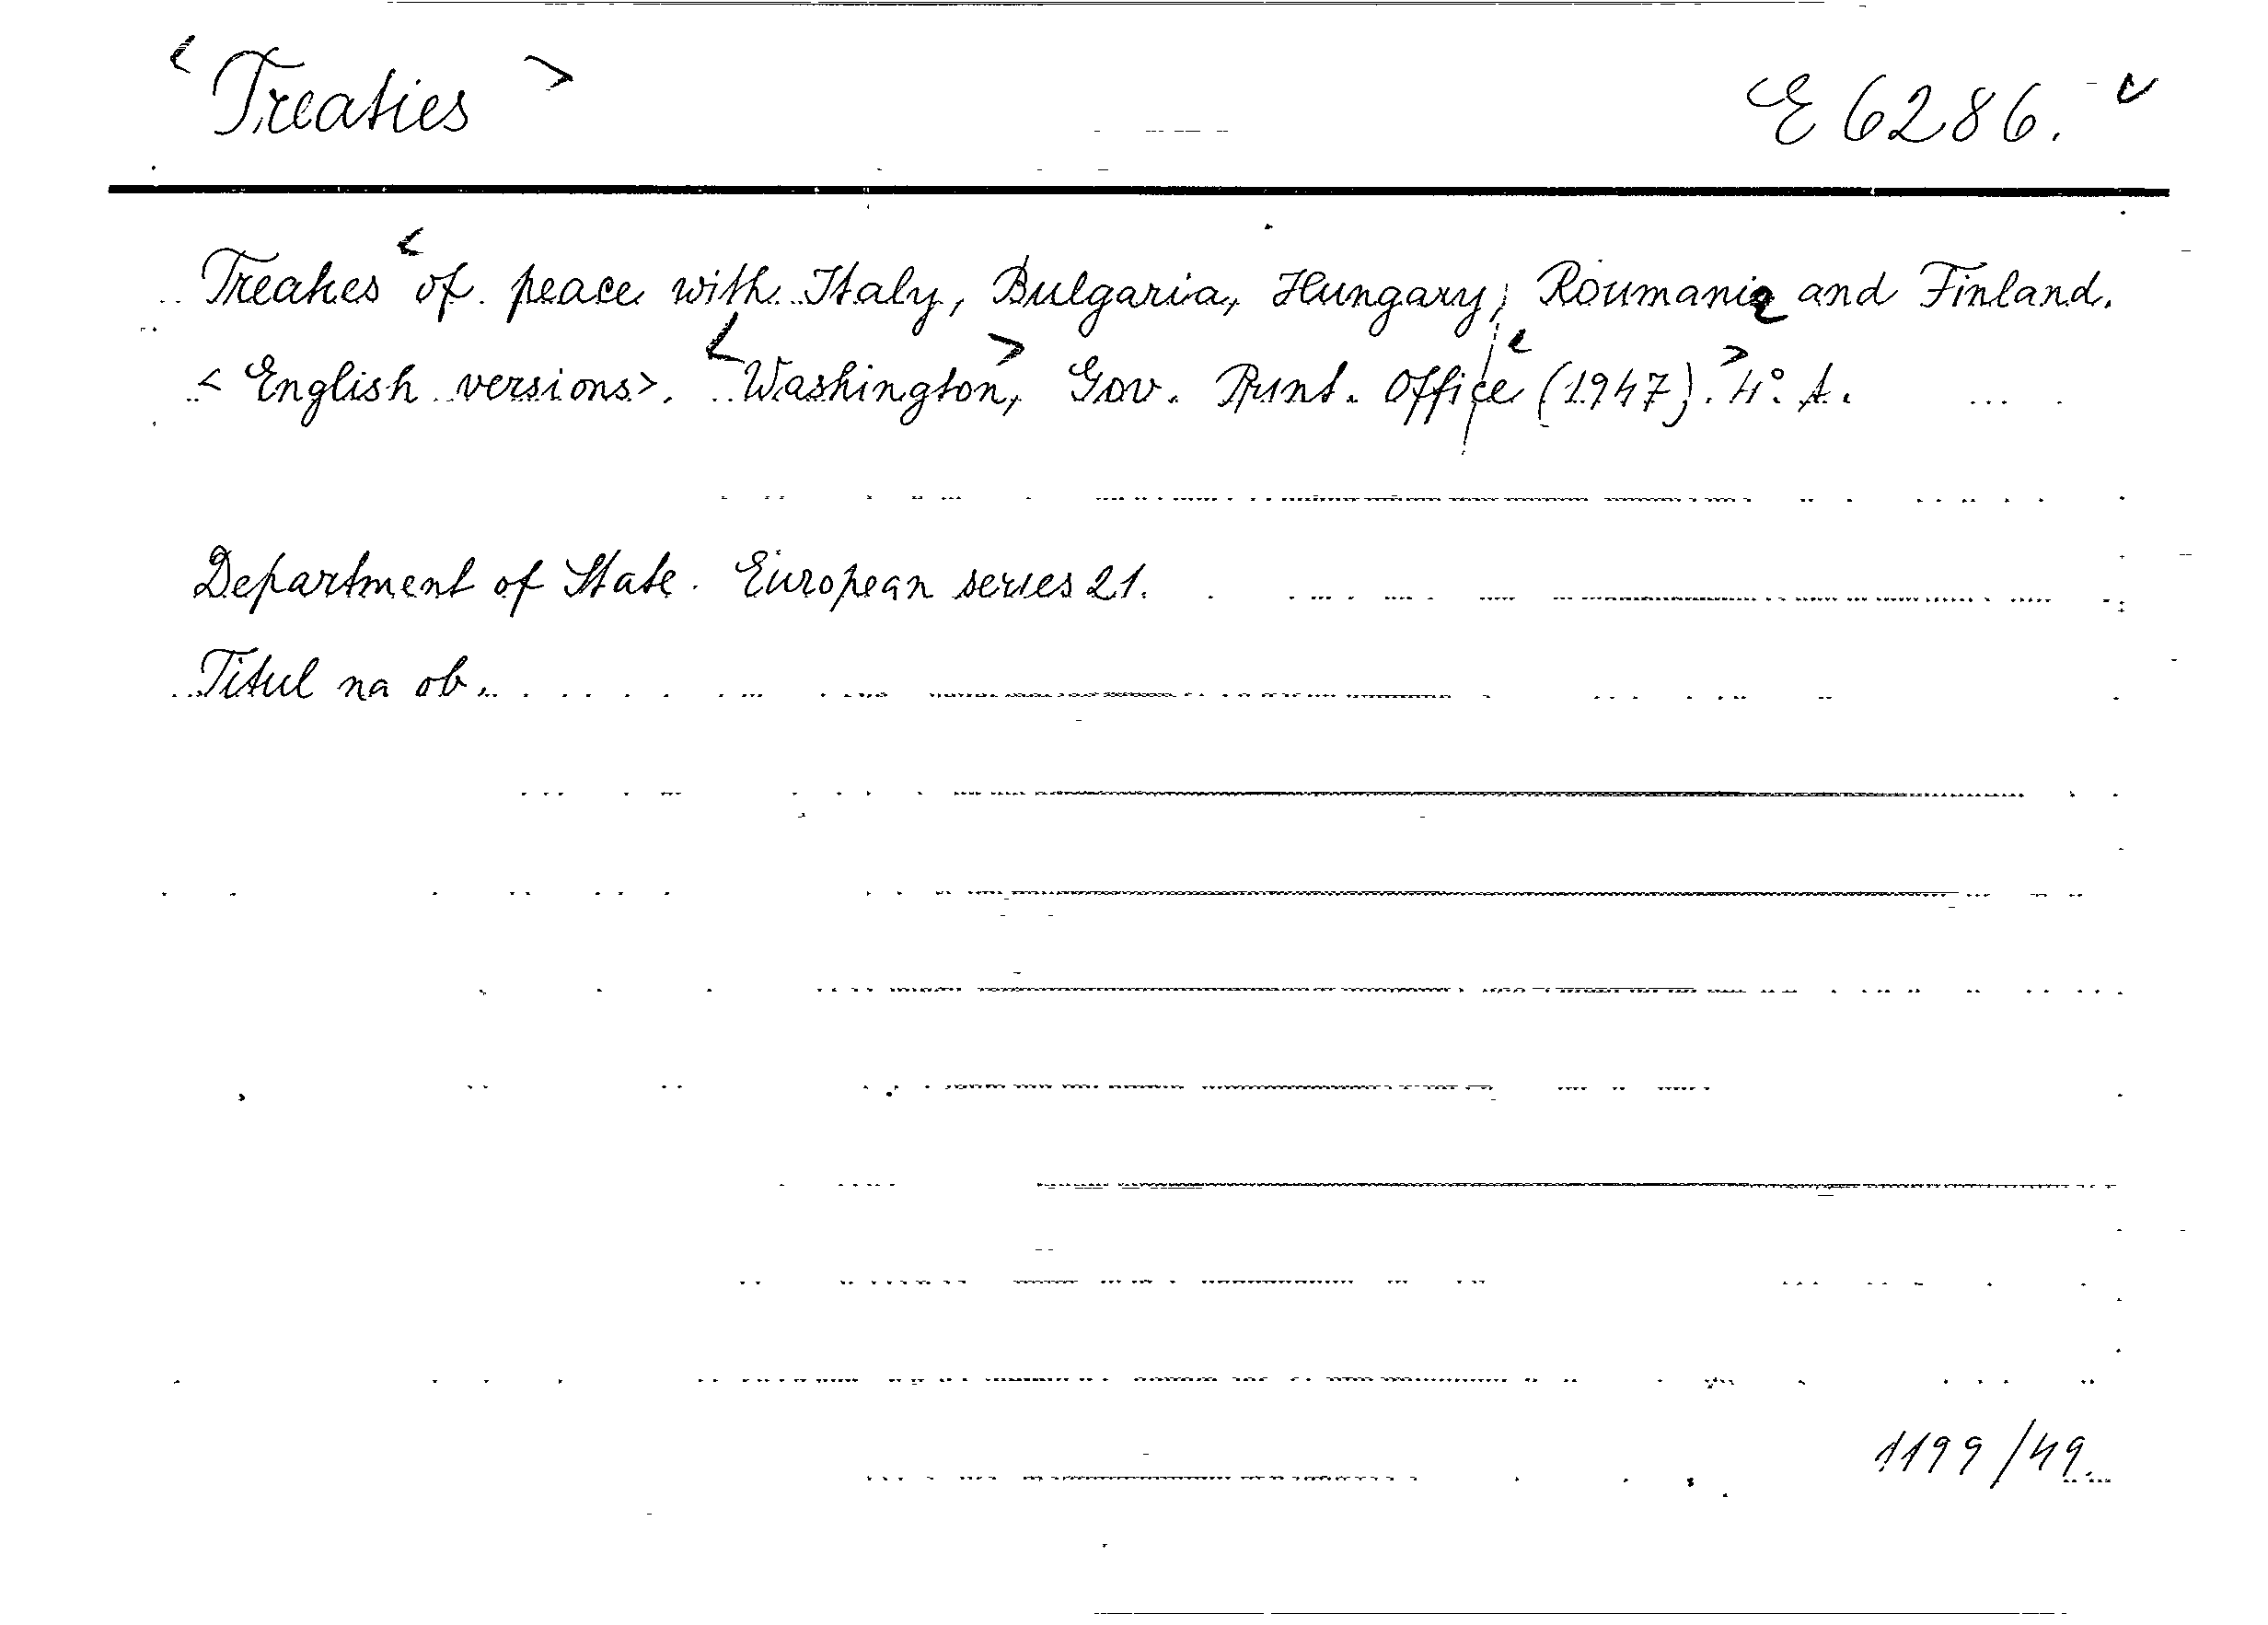 < Treaties > E 6286.
Treaties < of peace with Italy, Bulgaria, Hungary, Roumania and Finland.
< English versions>. < Washington, > Gov. Print. Office < (1947). > 4°. A.
Department of State. European series 21.
Titul na ob.
1199/49.